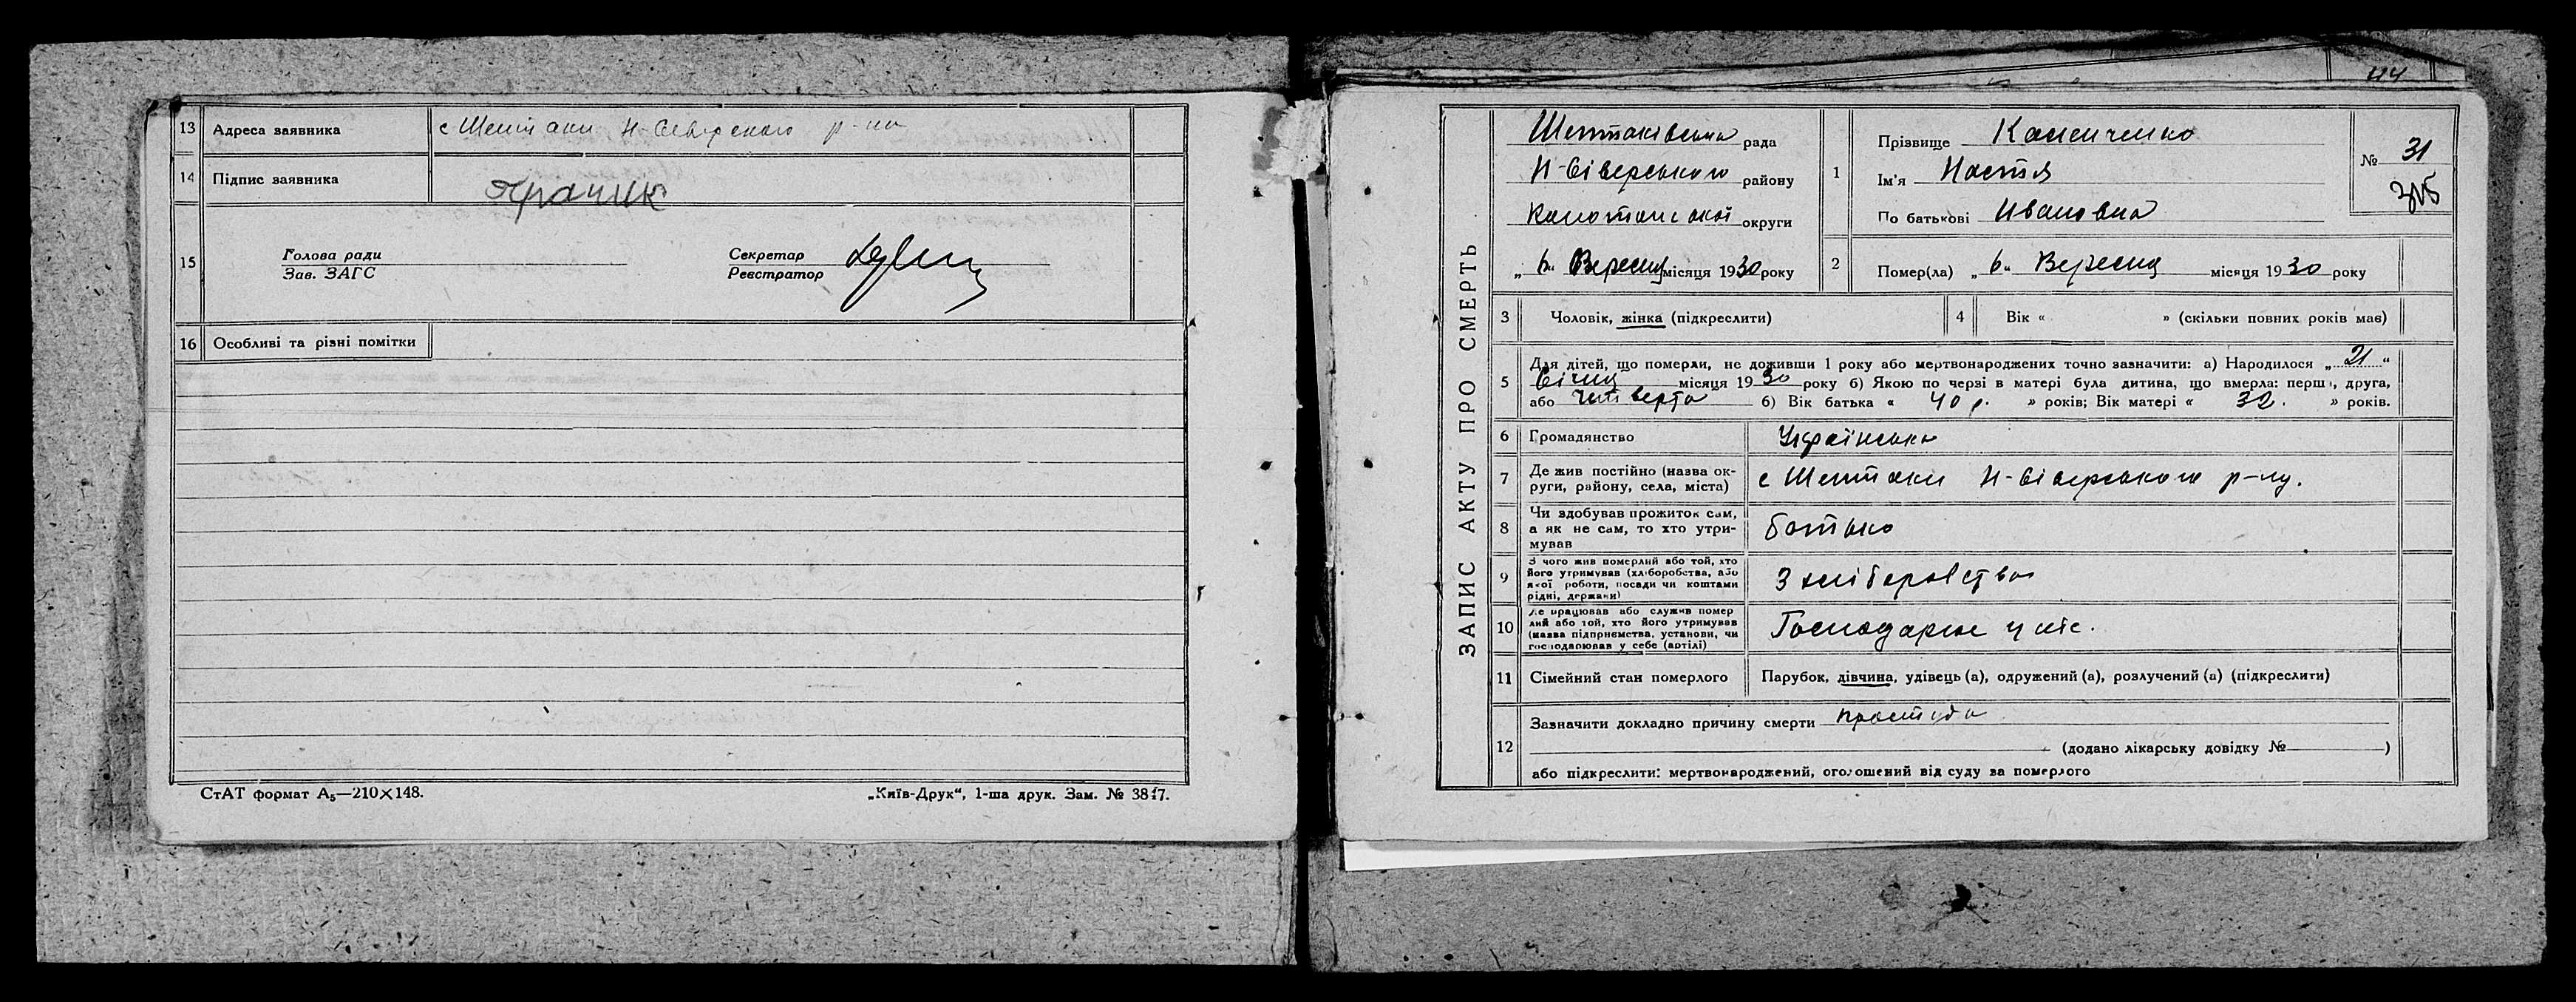 13 Адреса заявника с Шептаки Н-Сіверского р-на
14 Підпис заявника
15 Голова ради Секретар
Зав. ЗАГС Реєстратор
16 Особливі та різні помітки
СтАТ формат А₅—210×148. „Київ-Друк“, 1-ша друк. Зам. №
ЗАПИС АКТУ ПРО СМЕРТЬ
Шептаківська рада
Н-Сіверського району
Конотопської округи
„ 6 “ Вересня місяця 1930 року
1 Прізвище
Ім'я Настя
По батькові Ивановна
№ 31
305
2 Помер(ла) „ 6 “ Вересня місяця 1930 року
3 Чоловік, жінка (підкреслити)
4 Вік « » (скільки повних років має)
5 Для дітей, що померли, не доживши 1 року або мертвонароджених точно зазначити: а) Народилося „ 21 “
Січня місяця 1930 року б) Якою по черзі в матері була дитина, що вмерла: перша, друга,
або четверта б) Вік батька « 40 р. » років; Вік матері « 32. » років.
6 Громадянство Українська
7 Де жив постійно (назва ок-
руги, району, села, міста) с Шептаки Н-Сіверського р-ну.
8 Чи здобував прожиток сам,
а як не сам, то хто утри-
мував батько
9 З чого жив померлий або той, хто
його утримував (хліборобства, або
якої роботи, посади чи коштами
рідні, держави) З хліборобства
10 Де працював або служив помер
лий або той, хто його утримував
(назва підприємства, установи, чи
господарював у себе (артілі)
11 Сімейний стан померлого Парубок, дівчина, удівець (а), одружений (а), розлучений (а) (підкреслити)
12 Зазначити докладно причину смерти простуда
(додано лікарську довідку № )
або підкреслити: мертвонароджений, оголошений від суду за померлого